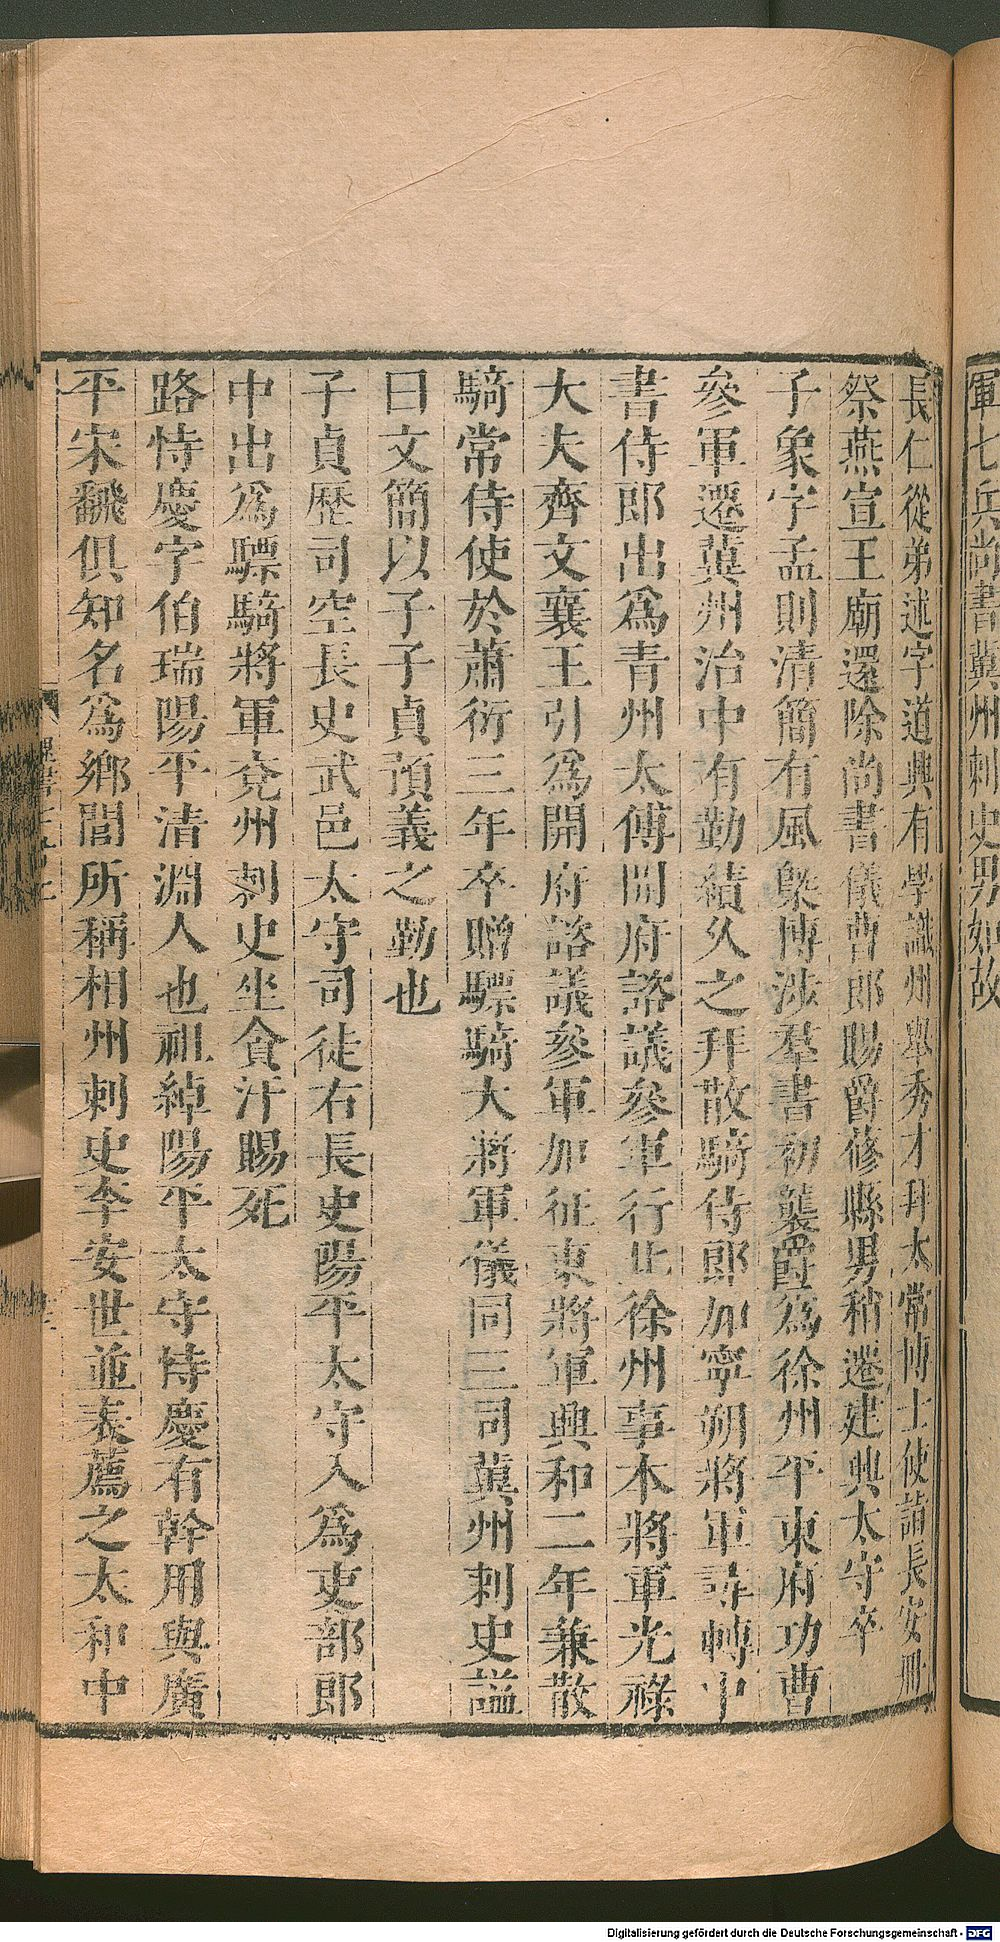 軍七兵尚書冀州刺史男如故
長仁從弟述字道興有學識州舉秀才拜太常博士使詣長安冊
祭燕宣王廟還除尚書儀曹郎賜爵蓨縣男稍遷建興太守卒
子象字孟則清簡有風槩博涉羣書初襲爵爲徐州平東府功曹
參軍遷冀州治中有勤績久之拜散騎侍郎加寧朔將軍尋轉中
書侍郎出爲青州太傅開府諮議參軍行北徐州事本將軍光祿
大夫齊文襄王引爲開府諮議參軍加征東將軍興和二年兼散
騎常侍使於蕭衍三年卒贈驃騎大將軍儀同三司冀州刺史謚
曰文簡以子子貞預義之勤也
子貞歷司空長史武邑太守司徒右長史陽平太守入爲吏部郎
中出爲驃騎將軍兗州刺史坐貪汙賜死
路恃慶字伯瑞陽平清淵人也祖綽陽平太守恃慶有幹用與廣
平宋飜俱知名爲鄉閭所稱相州刺史李安世並表薦之太和中
Digitalisierung gefördert durch die Deutsche Forschungsgemeinschaft - DFG